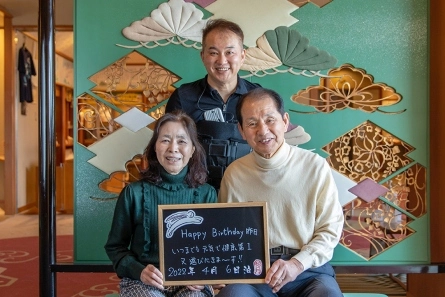 Happy Birthday 昨日
いつまでも元気で健康第1
又遊びたまーす!!
2022年4月6日 泊